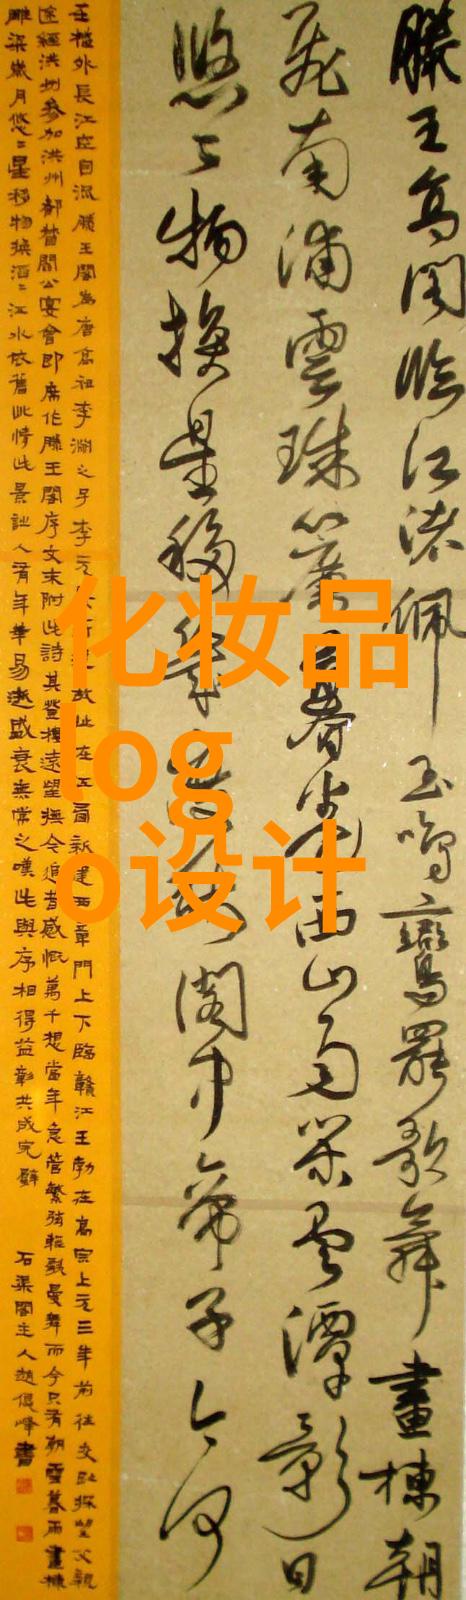 滕王高閣臨江渚佩玉鳴鸞罷歌舞畫棟朝
飛南浦雲珠簾暮卷西山雨閒雲潭影日
悠〻物換星移幾度秋閣中帝子今何
在檻外長江空自流滕王閣為唐高祖李淵之子李元故址在新建西章門上下臨贛江王勃在高宗上元三年前往交趾探望父親
途經洪州參加洪州都督閻公宴會即席作滕王閣序文末附此詩其登樓遠望撫今追昔感慨萬千想當年急管繁弦輕歌曼舞而今只有朝雲暮雨畫棟
雕梁歲月悠〻星移物換滔〻江水依舊此情此景人有年華易逝盛衰無常之嘆此與序相得益彰共成完璧
石渠閣主人趙俊峰書
化妆品
log
o设计